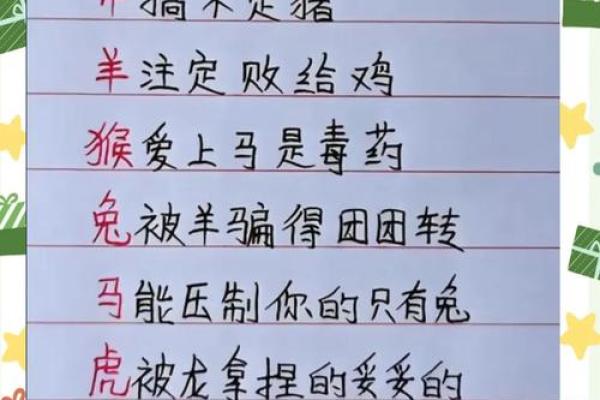 搞不定猪
羊注定败给鸡
猴爱上马是毒药
兔被羊骗得团团转
马能压制你的只有兔
虎被龙拿捏的妥妥的